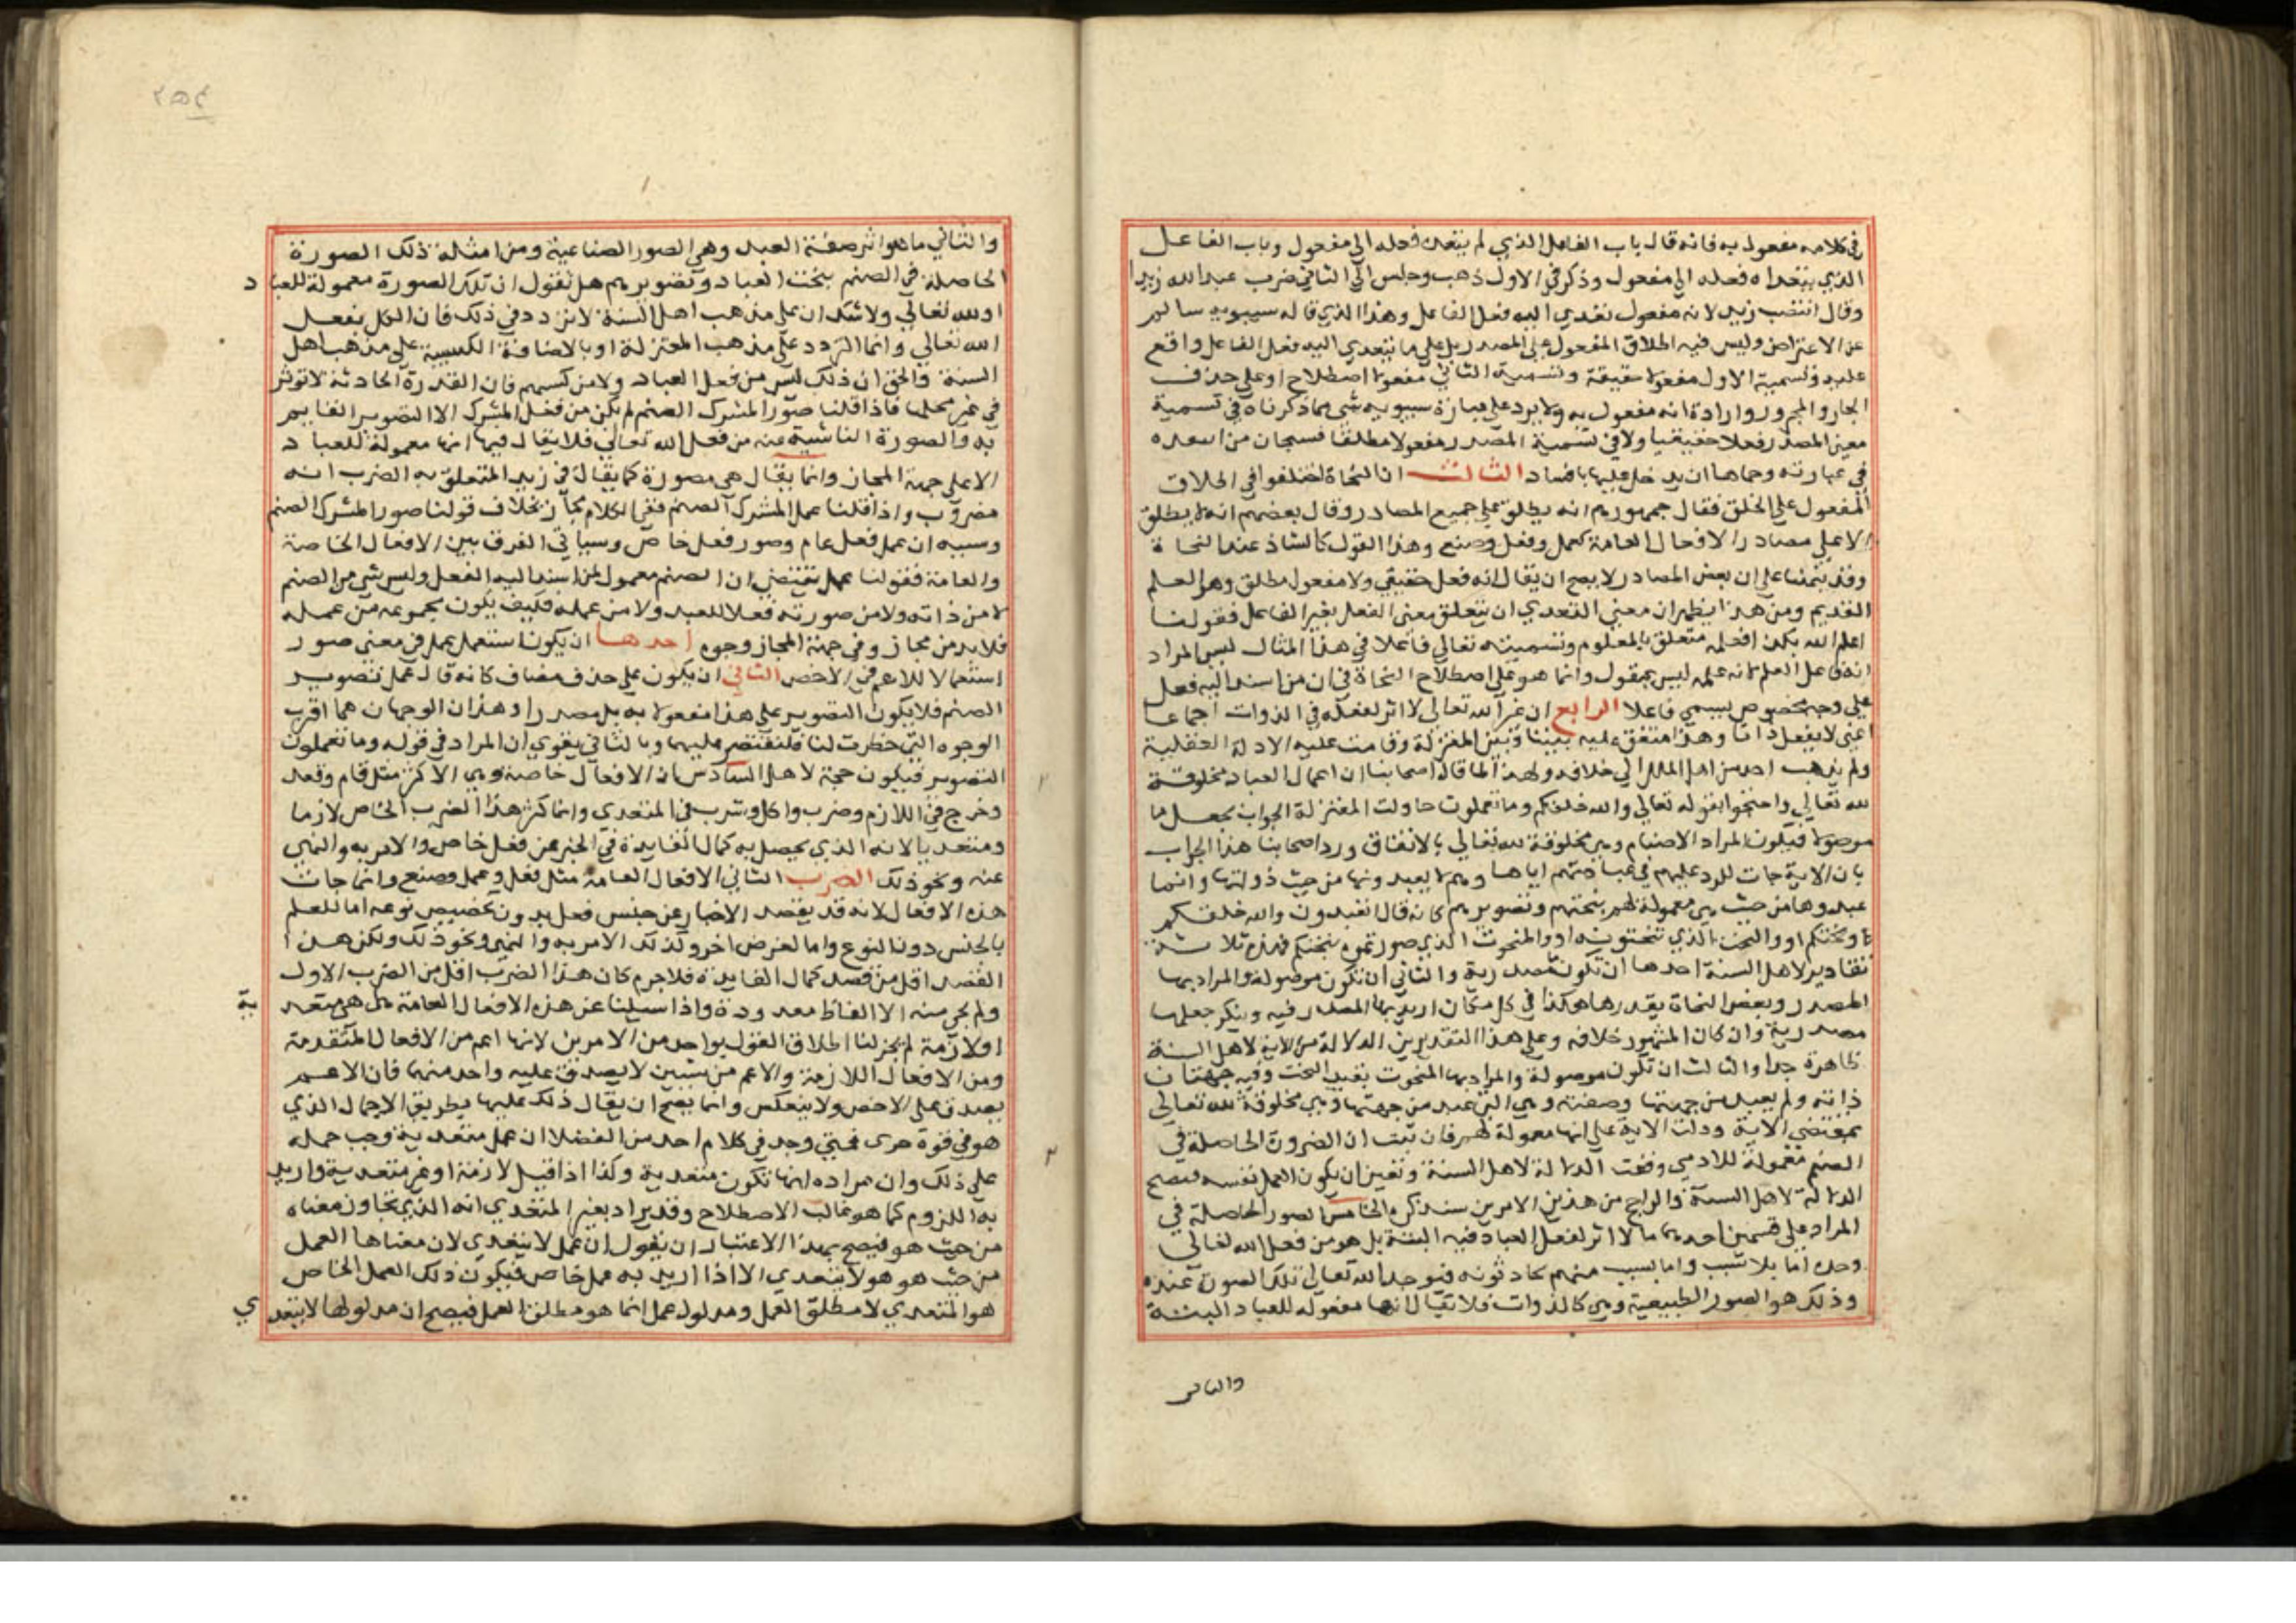 في كلامه مفعول به فانه قال باب الفاعل الذي لم يتعده فعله الى مفعول وباب الفاعل
الذي يتعداه فعله الى مفعول وذكر في الاول ذهب وجلس وفي الثاني ضرب عبد الله زيدا
وقال انتصب زيد لانه مفعول تعدي اليه فعل الفاعل وهذا الذي قاله سيبويه سالم
عن الاعتراض وليس فيه اطلاق المفعول على المصدر بل على ما يتعدي اليه فعل الفاعل واقع
عليه وتسمية الاول مفعولا حقيقة وتسمية الثاني مفعولا اصطلاح او على حذف
الجار والمجرور وارادة انه مفعول به ولا يرد على عبارة سيبويه شي مما ذكرناه في تسمية
معنى المصدر فعلا حقيقيا ولا في تسمية المصدر مفعولا مطلقا فسبحان من اسعده
في عبارته وحماها ان يدخل عليها بافساد الثالث ان النحاة اختلفوا في اطلاق
المفعول على الخلق فقال جمهورهم انه يطلق على جميع المصادر وقال بعضهم انه لا يطلق
الا على مصادر الافعال العامة كعمل وفعل وصنع وهذا القول كالشاذ عند النحاة
وقد نبهنا على ان بعض المصادر لا يصح ان يقال انه فعل حقيقي ولا مفعول مطلق وهو العلم
القديم ومن هذا يظهر ان معنى التعدي ان يتعلق معنى الفعل بغير الفاعل فقولنا
اعلم الله بكذا فعلمه متعلق بالمعلوم وتسميته تعالى فاعلا في هذا المثال ليس المراد
انه فاعل العلم لانه علمه ليس بمقول وانما هو على اصطلاح النحاة في ان من اسند اليه فعل
على وجه مخصوص يسمي فاعلا الرابع ان غير الله تعالى لا اثر لفعله في الذوات اجماعا
اعني لا يفعل ذاتا وهذا متفق عليه بيننا وبين المعتزلة وقامت عليه الادلة العقلية
ولم يذهب احد من اهل الملل الى خلافه ولهذا لما قال اصحابنا ان اعمال العباد مخلوقة
لله تعالي واحتجوا بقوله تعالي والله خلقكم وما تعملون حاولت المعتزلة الجواب بجعل ما
موصولا فيكون المراد الاصنام وهي مخلوقة لله تعالي بالاتفاق ورد اصحابنا هذا الجواب
بان الاية جات للرد عليهم في عبادتهم اياها وهم لا يعبدونها من حيث ذواتها وانما
عبدوها من حيث هي معمولة لهم بنحتهم وتصويرهم كانه قال اتعبدون والله خلقكم
ونحتكم او والنحت الذي تنحتونه او والمنحوت الذي صورتموه بنحتكم فهذه ثلاثة
تقادير لاهل السنة احدها ان تكون مصدرية والثاني ان تكون موصولة والمراد بها
المصدر وبعض النحاة يقدرها هكذا في كل مكان اريد بها المصدر فيه وينكر جعلها
مصدرية وان كان المشهور خلافه وعلى هذا التقديرين الدلالة من الاية لاهل السنة
ظاهرة جدا والثالث ان تكون موصولة والمراد بها المنحوت بقيد النحت وفيه جهتان
ذاته ولم يعبد من جهتها وصفته وهي التي عبد من جهتها وهي مخلوقة لله تعالى
بمقتضي الاية ودلت الاية على انها معمولة لهم فان ثبت ان الصورة الحاصلة في
الصنم معمولة للادمي وقفت الدلالة لاهل السنة وتعين ان يكون العمل نفسه فتصح
الدلالة لاهل السنة والراجح من هذين الامرين سنذكره الخامس الصور الحاصلة في
المراد على قسمين احدهما ما لا اثر لفعل العباد فيه البتة بل هو من فعل الله تعالي
وحده اما بلا سبب واما بسبب منهم كادثونه فيوجد الله تعالى تلك الصورة عنده
وذلك هو الصور الطبيعية وهي كالذوات فلا يقال انها مفعولة للعباد البتة
والثاني
٢٥٤
والثاني ما هو اثر صنعة العبد وهي الصور الصناعية ومن امثلة ذلك الصورة
الحاصلة في الصنم بنحت العباد وتصويرهم هل نقول ان تلك الصورة معمولة للعباد
او لله تعالي ولا شك ان على مذهب اهل السنة لا نردد في ذلك فان الكل بفعل
الله تعالي وانما التردد على مذهب المعتزلة او بالاضافة الكسبية على مذهب اهل
السنة والحق ان ذلك ليس من فعل العباد ولا من كسبهم فان القدرة الحادثة لا توثر
في غير محلها فاذا قلنا صور المشرك الصنم لم يكن من فعل المشرك الا التصوير القايم
به والصورة الناشية عنه من فعل الله تعالي فلا يقال فيها انها معمولة للعباد
الا على جهة المجاز وانما يقال هي مصورة كما يقال في زيد المتعلق به الضرب انه
مضروب واذا قلنا عمل المشرك الصنم ففي الكلام مجاز بخلاف قولنا صور المشرك الصنم
وسببه ان عمل فعل عام وصور فعل خاص وسياتي الفرق بين الافعال الخاصة
والعامة فقولنا عمل يقتضي ان الصنم معمول لمن اسند اليه الفعل وليس شي من الصنم
لا من ذاته ولا من صورته فعلا للعبد ولا من عمله فكيف يكون مجموعه من عمله
فلا بد من مجاز وفي جهة المجاز وجوه احدها ان يكون استعمل عمل في معنى صور
استعمالا للاعم في الاخص الثاني ان يكون على حذف مضاف كانه قال عمل تصوير
الصنم فلا يكون التصوير على هذا مفعولا به بل مصدرا وهذان الوجهان هما اقرب
الوجوه التي خطرت لنا فلنقتصر عليهما وبالثاني يقوي ان المراد في قوله وما تعملون
التصوير فيكون حجة لاهل السادس ان الافعال خاصة وهي الاكثر مثل قام وقعد
وخرج في اللازم وضرب واكل وشرب في المتعدي وانما كثر هذا الضرب الخاص لازما
ومتعديا لانه الذي يحصل به كمال الفايدة في الخبر عن فعل خاص والامر به والنهي
عنه ونحو ذلك الضرب الثاني الافعال العامة مثل فعل وعمل وصنع وانما جات
هذه الافعال لانه قد يقصد الاخبار عن جنس فعل بدون تخصيص نوعه اما للعلم
بالجنس دون النوع واما لغرض اخر وكذلك الامر به والنهي ونحو ذلك ولكن هذا
القصد اقل من قصد كمال الفايدة فلا جرم كان هذا الضرب اقل من الضرب الاول
ولم يجي منه الا الفاظ معدودة واذا سيلنا عن هذه الافعال العامة هل هي متعدية
او لازمة لم يجز لنا اطلاق القول بواحد من الامرين لانها اعم من الافعال المتقدمة
ومن الافعال اللازمة والاعم من شيين لا يصدق عليه واحد منهما فان الاعم
يصدق على الاخص ولا ينعكس وانما يصح ان يقال ذلك عليها بطريق الاجمال الذي
هو في قوة جزي فمتي وجد في كلام احد من الفضلا ان عمل متعدية وجب حمله
على ذلك وان مراده انها تكون متعدية وكذا اذا قيل لازمة او غير متعدية واريد
به اللزوم كما هو غالب الاصطلاح وقد يراد بغير المتعدي انه الذي تجاوز معناه
من حيث هو فيصح بهذا الاعتبار ان يقول ان عمل لا يتعدي لان معناها العمل
من حيث هو هو لا يتعدي الا اذا اريد به عمل خاص فيكون ذلك العمل الخاص
هو المتعدي لا مطلق العمل ومدلول عمل انما هو مطلق العمل فيصح ان مدلولها لا يتعدي